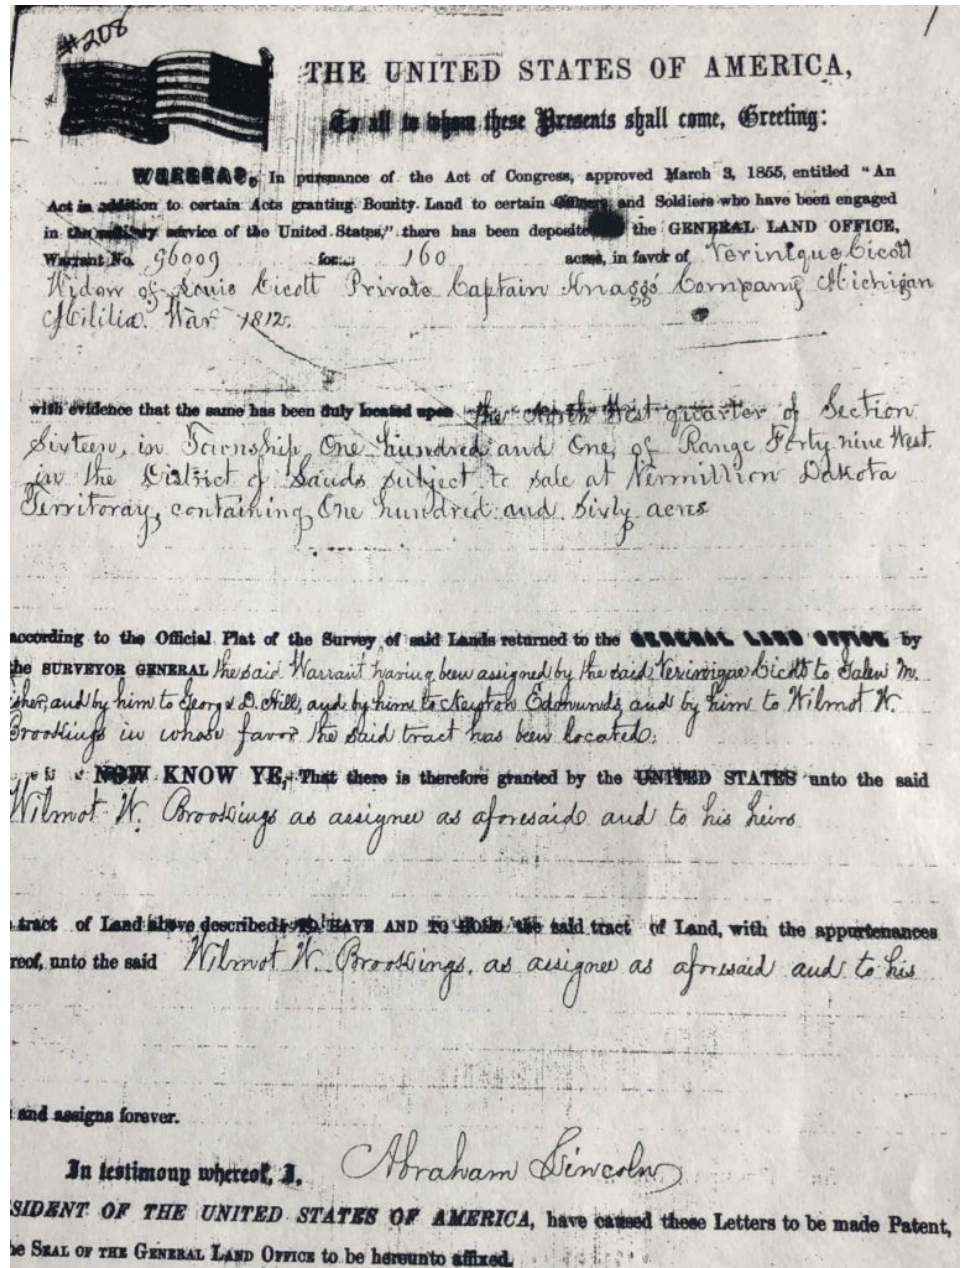 #208
THE UNITED STATES OF AMERICA,
To all to whom these Presents shall come, Greeting:
WHEREAS, In pursuance of the Act of Congress, approved March 3, 1855, entitled "An
Act in addition to certain Acts granting Bounty Land to certain Officers and Soldiers who have been engaged
in the military service of the United States," there has been deposited the GENERAL LAND OFFICE,
Warrant No. 96009 for 160 acres, in favor of Verinique Cicott
Widow of Louis Cicott Private Captain Knaggs Company Michigan
Militia. War 1812.
with evidence that the same has been duly located upon the North West quarter of Section
Sixteen, in Township One hundred and One, of Range Forty nine West.
in the District of Lands subject to sale at Vermillion Dakota
Territoray, containing One hundred and Sixty acres
according to the Official Plat of the Survey of said Lands returned to the GENERAL LAND OFFICE by
he SURVEYOR GENERAL the said Warrant having been assigned by the said Verinique Cicott to Galen M.
sher, and by him to George D. Hill, and by him to Newton Edmunds, and by him to Wilmot W.
Brookings in whose favor the said tract has been located.
NOW KNOW YE, That there is therefore granted by the UNITED STATES unto the said
Wilmot W. Brookings as assignee as aforesaid and to his heirs
tract of Land above described: TO HAVE AND TO HOLD the said tract of Land, with the appurtenances
reof, unto the said Wilmot W. Brookings, as assignee as aforesaid and to his
and assigns forever.
In testimony whereof, I, Abraham Lincoln
SIDENT OF THE UNITED STATES OF AMERICA, have caused these Letters to be made Patent,
he SEAL OF THE GENERAL LAND OFFICE to be hereunto affixed.